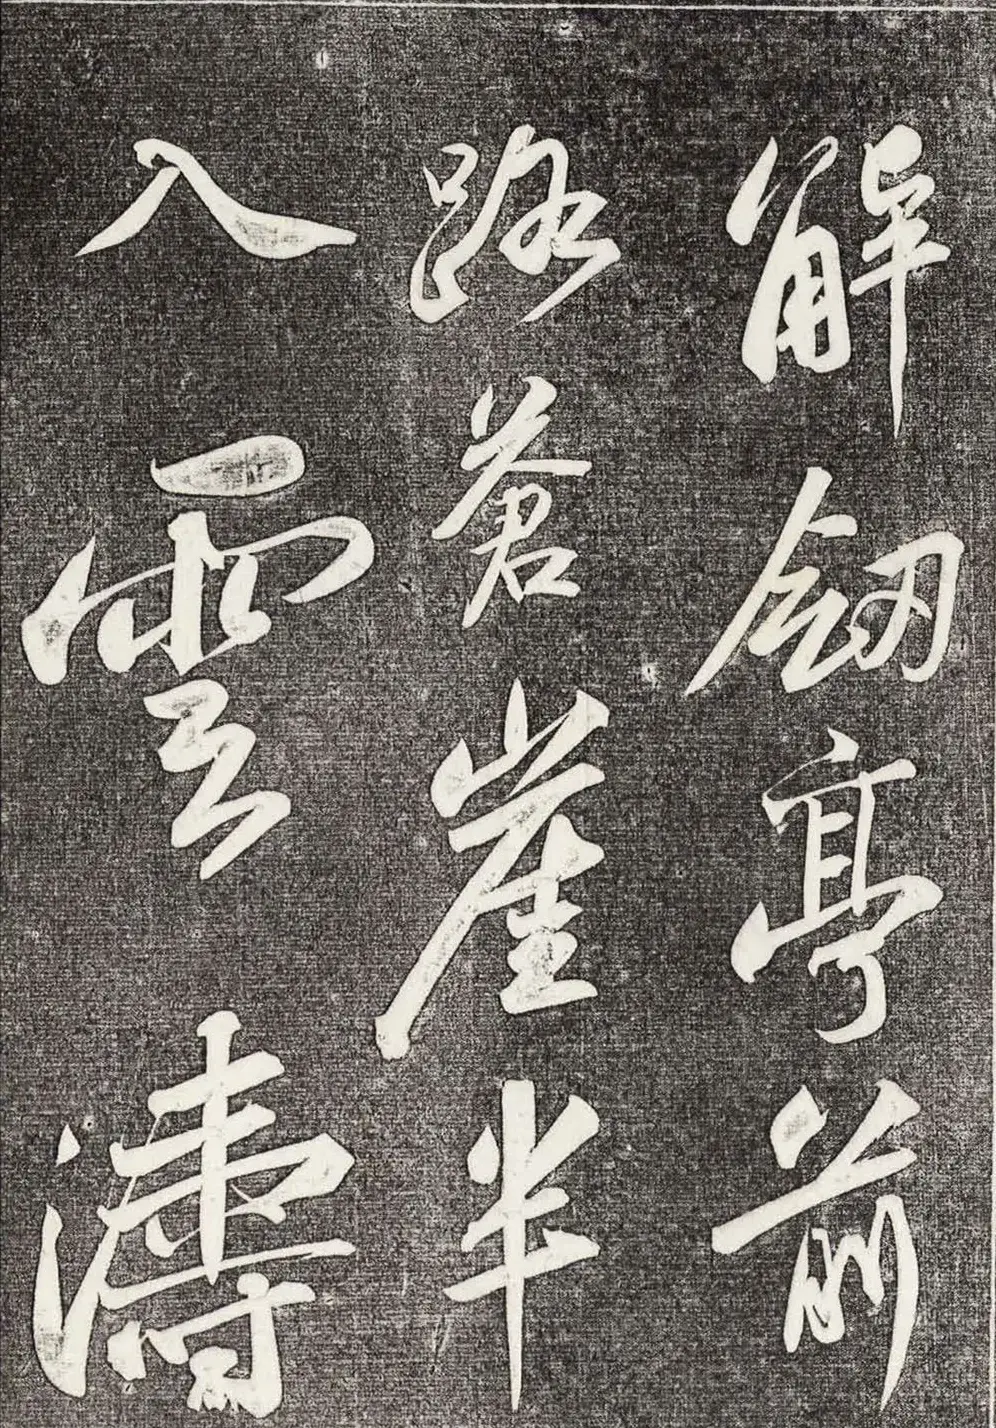 解劔亭前
路蒼崖半
入雲濤